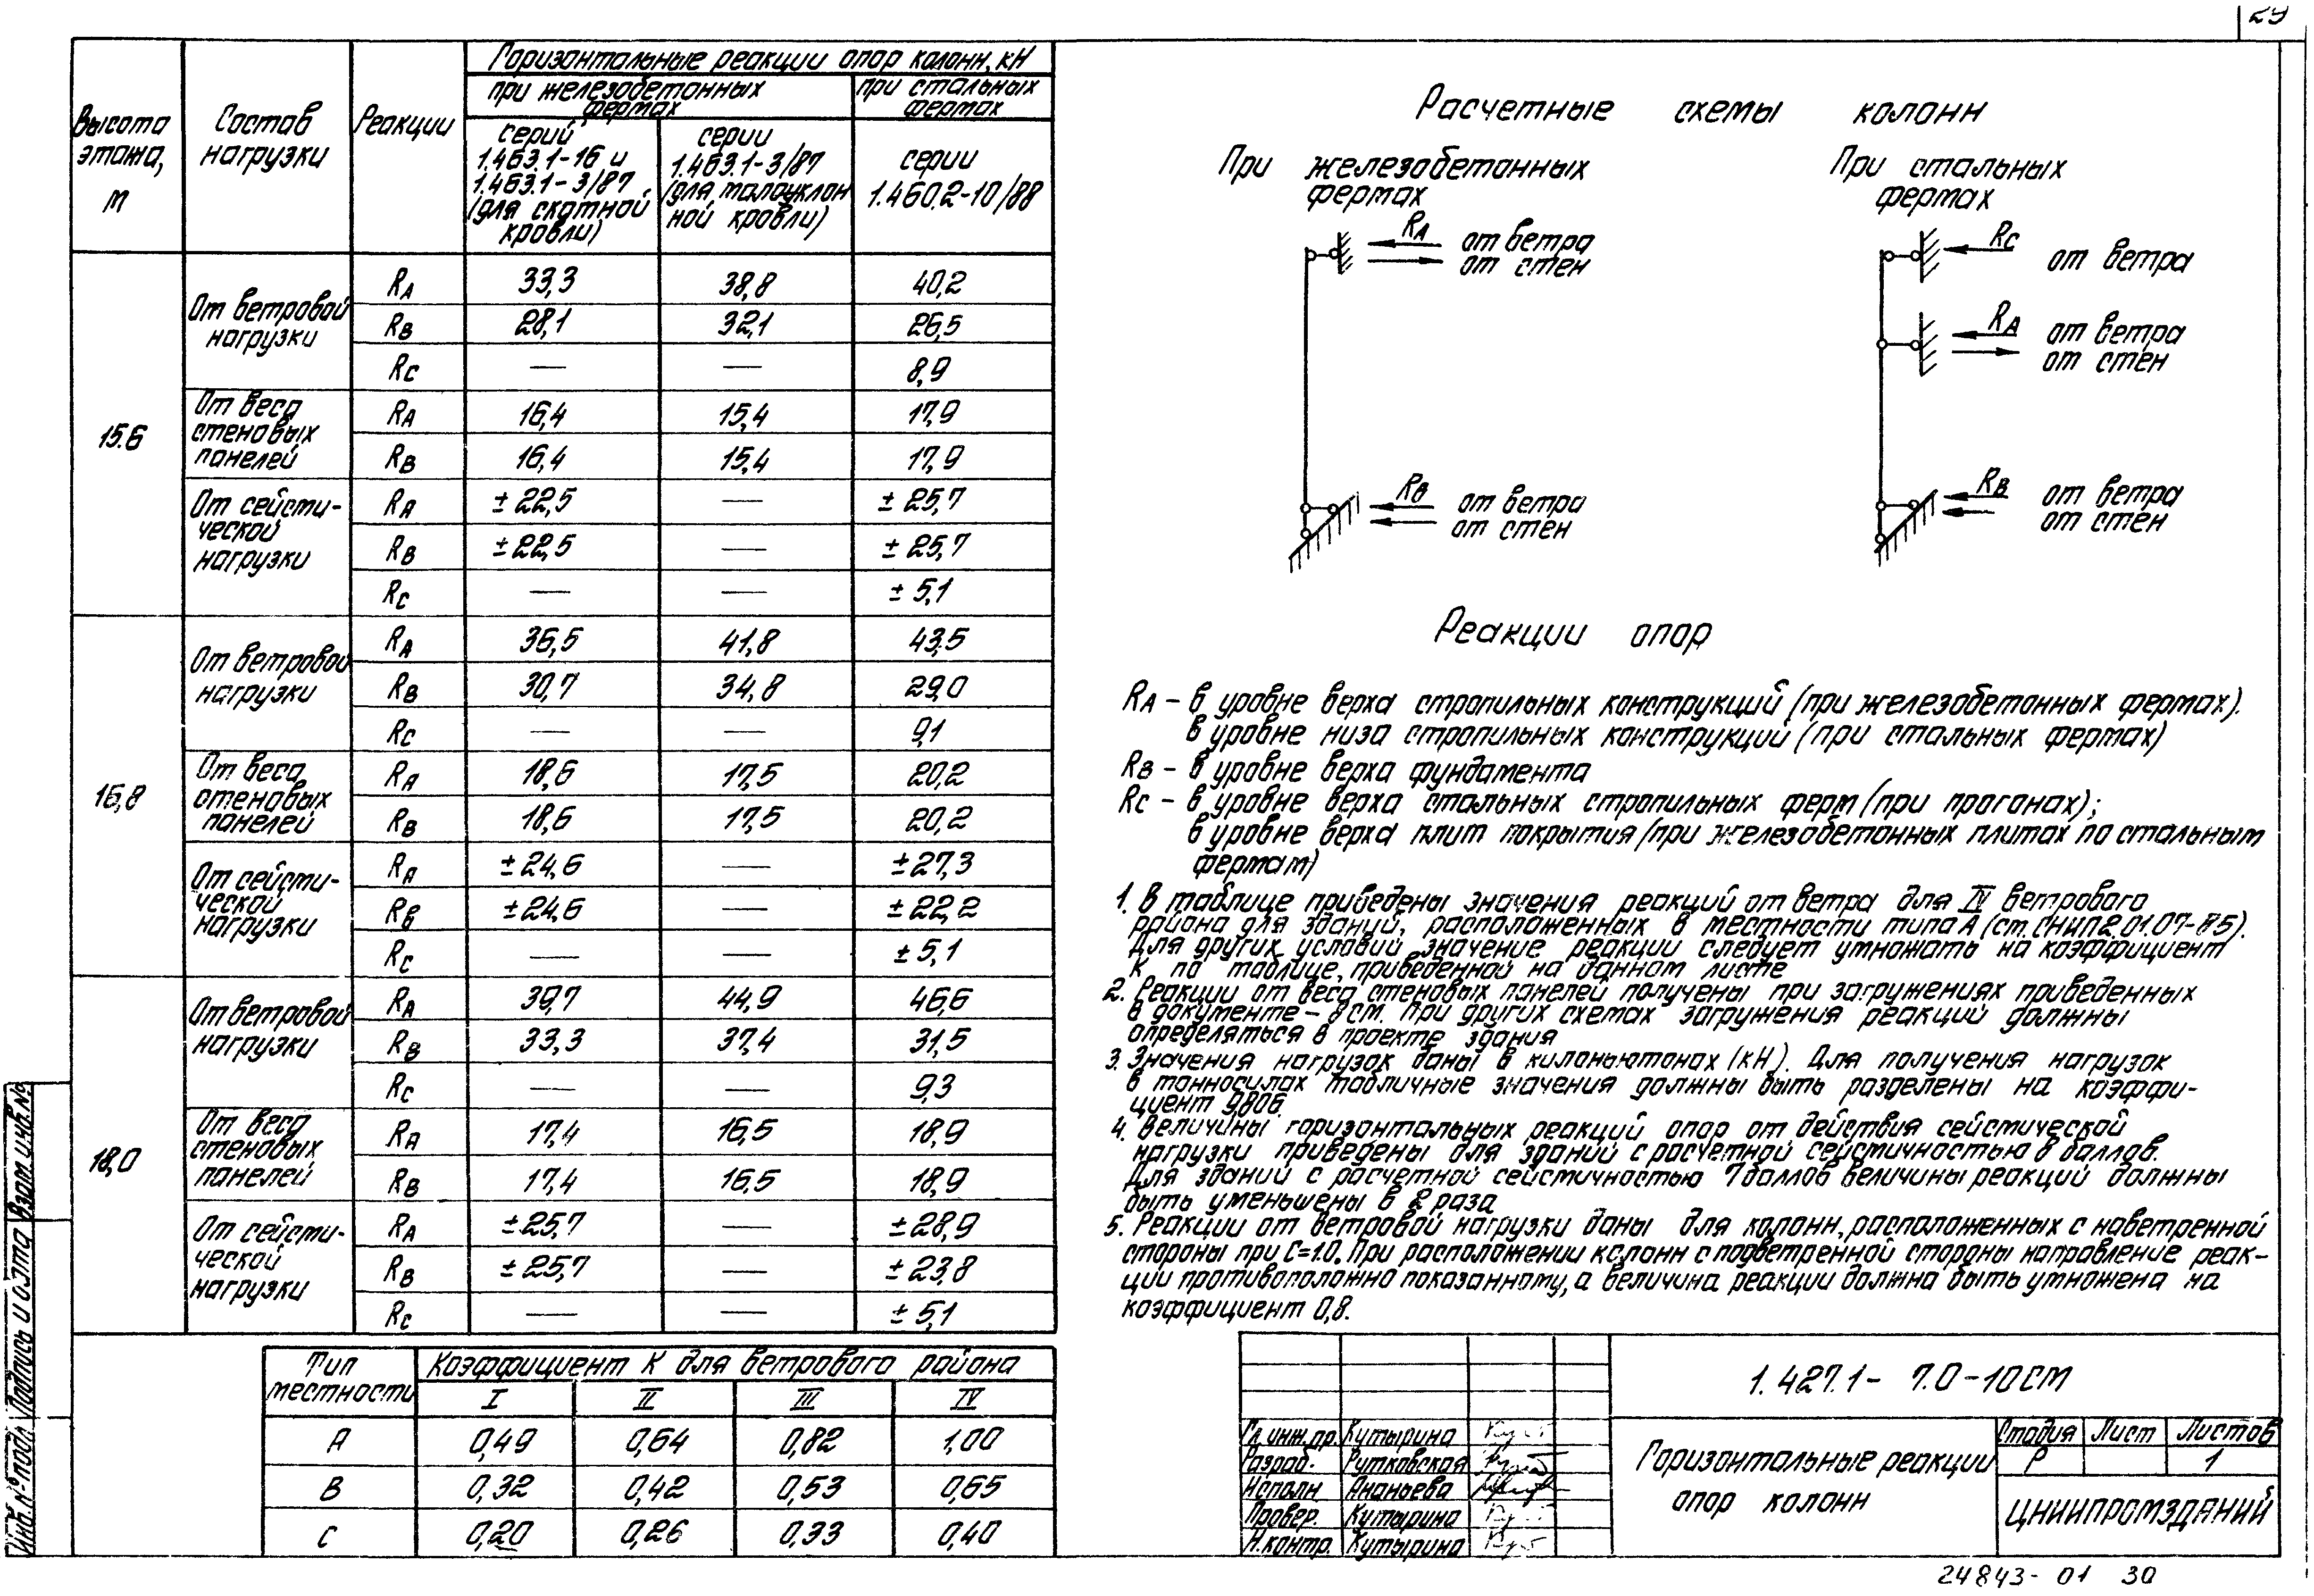 29
Горизонтальные реакции опор колонн, кН
Высота этажа, м
Состав нагрузки
Реакции
при железобетонных фермах
при стальных фермах
серий 1.463.1-16 и 1.463.1-3/87 (для скатной кровли)
серии 1.463.1-3/87 (для малоуклонной кровли)
серии 1.460.2-10/88
15.6
От ветровой нагрузки
RA 33,3 38,8 40,2
RB 28,1 32,1 26,5
RC — — 8,9
От веса стеновых панелей
RA 16,4 15,4 17,9
RB 16,4 15,4 17,9
От сейсмической нагрузки
RA ±22,5 — ±25,7
RB ±22,5 — ±25,7
RC — — ±5,1
16,8
От ветровой нагрузки
RA 36,5 41,8 43,5
RB 30,7 34,8 29,0
RC — — 9,1
От веса стеновых панелей
RA 18,6 17,5 20,2
RB 18,6 17,5 20,2
От сейсмической нагрузки
RA ±24,6 — ±27,3
RB ±24,6 — ±22,2
RC — — ±5,1
18,0
От ветровой нагрузки
RA 39,7 44,9 46,6
RB 33,3 37,4 31,5
RC — — 9,3
От веса стеновых панелей
RA 17,4 16,5 18,9
RB 17,4 16,5 18,9
От сейсмической нагрузки
RA ±25,7 — ±28,9
RB ±25,7 — ±23,8
RC — — ±5,1
Тип местности
Коэффициент К для ветрового района
I II III IV
А 0,49 0,64 0,82 1,00
В 0,32 0,42 0,53 0,65
С 0,20 0,26 0,33 0,40
Расчетные схемы колонн
При железобетонных фермах
При стальных фермах
RA от ветра
от стен
RB от ветра
от стен
RC от ветра
RA от ветра
от стен
RB от ветра
от стен
Реакции опор
RA – в уровне верха стропильных конструкций (при железобетонных фермах).
в уровне низа стропильных конструкций (при стальных фермах)
RB – в уровне верха фундамента
RC – в уровне верха стальных стропильных ферм (при прогонах);
в уровне верха плит покрытия (при железобетонных плитах по стальным
фермам)
1. В таблице приведены значения реакций от ветра для IV ветрового
района для зданий, расположенных в местности типа А (см. СНиП 2.01.07-85).
Для других условий значение реакции следует умножать на коэффициент
К по таблице, приведенной на данном листе
2. Реакции от веса стеновых панелей получены при загружениях приведенных
в документе – 8см. При других схемах загружения реакций должны
определяться в проекте здания
3. Значения нагрузок даны в килоньютонах (кН). Для получения нагрузок
в тонносилах табличные значения должны быть разделены на коэффи-
циент 9,806.
4. Величины горизонтальных реакций опор от действия сейсмической
нагрузки приведены для зданий с расчетной сейсмичностью 8 баллов.
Для зданий с расчетной сейсмичностью 7 баллов величины реакций должны
быть уменьшены в 2 раза
5. Реакции от ветровой нагрузки даны для колонн, расположенных с наветренной
стороны при С=1.0. При расположении колонн с подветренной стороны направление реак-
ции противоположно показанному, а величина реакции должна быть умножена на
коэффициент 0,8.
1.427.1- 7.0-10СМ
Гл. инж. пр. Кутырина
Разраб. Рутковская
Исполн. Ананьева
Провер. Кутырина
Н.контр. Кутырина
Горизонтальные реакции
опор колонн
Стадия Лист Листов
Р 1
ЦНИИПРОМЗДАНИЙ
24843-01 30
Взам. инв. №
Подпись и дата
Инв. № подл.